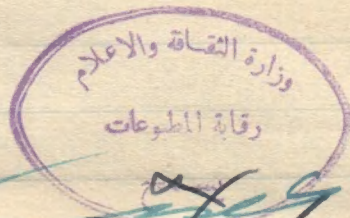 وزارة الثقافة والاعلام
رقابة المطبوعات